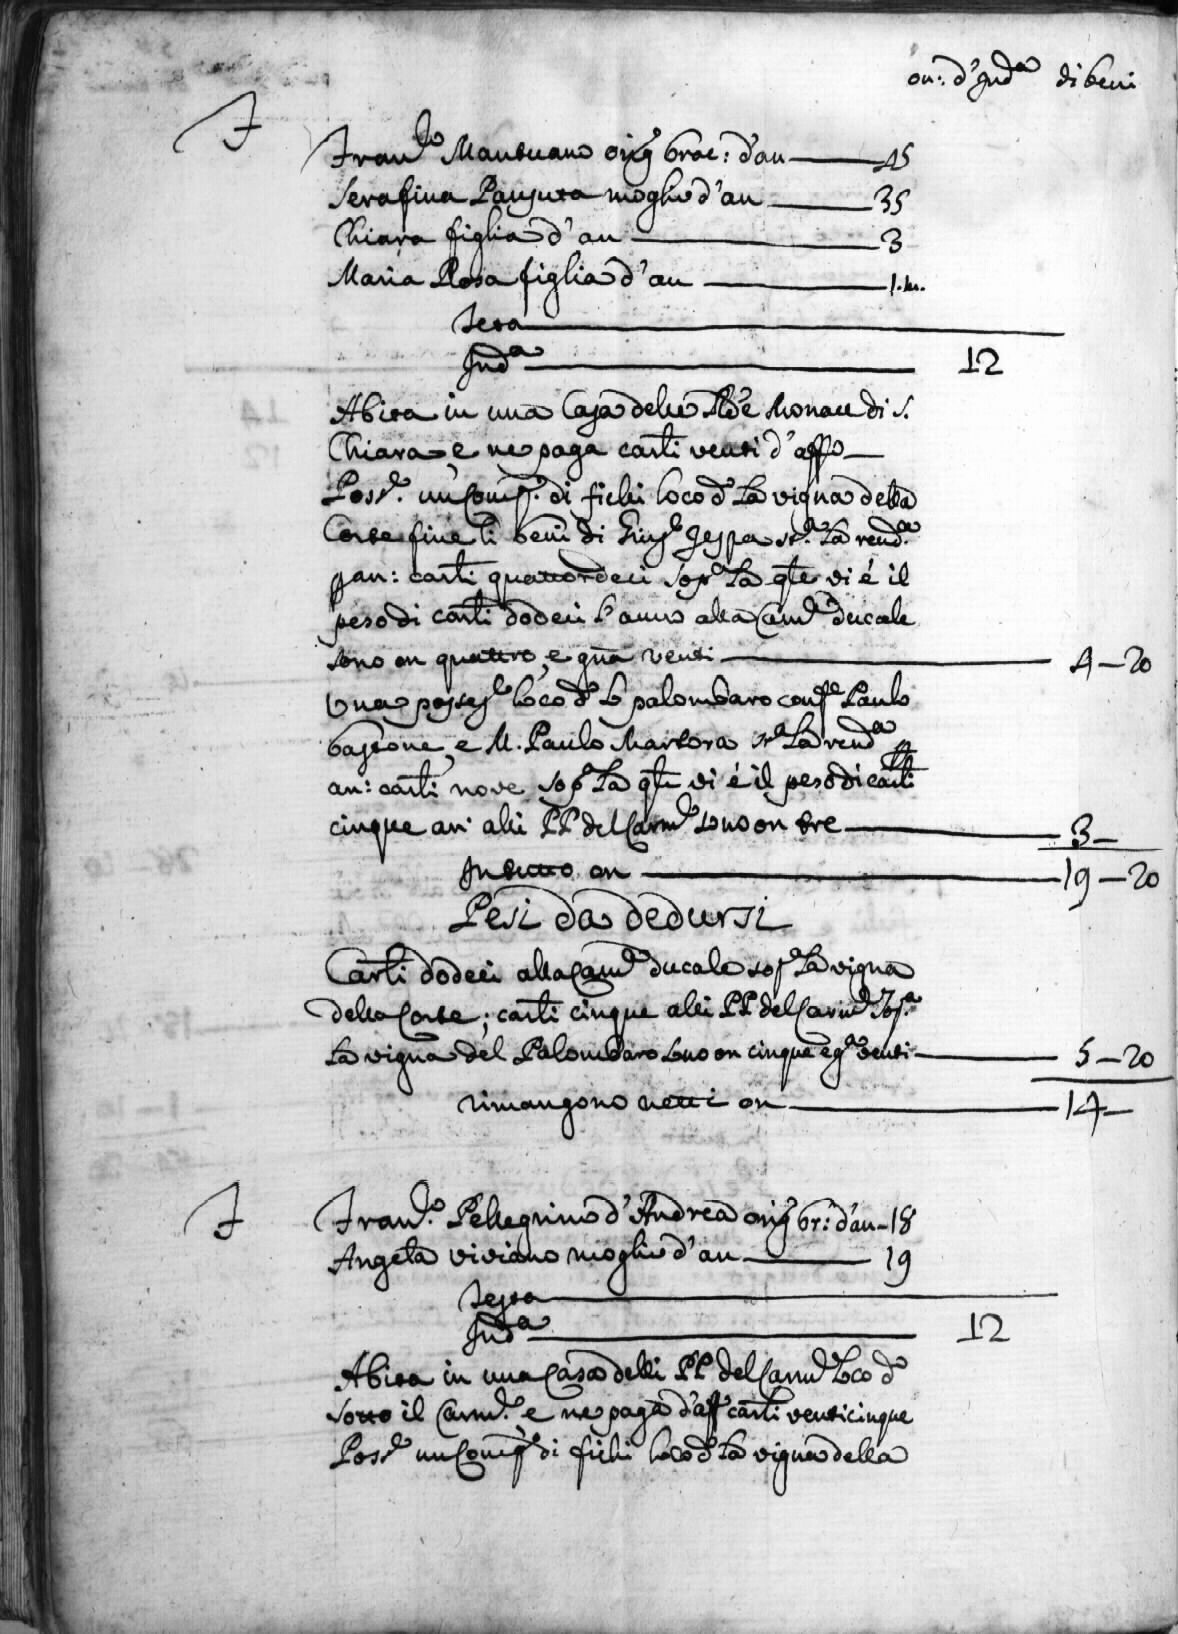 on: d'Ind.a di beni
F
Fran.co Mantuano orig. brac: d'an 45
Serafina Panzuta moglie d'an 35
Chiara figlia d'an 3
Maria Rosa figlia d'an 1.m.
Testa
Ind.a 12
Abita in una Casa delle RR.de Monace di S.
Chiara, e ne paga carli venti d'affo
Poss.e un Comp.o di fichi loco d.o la vigna della
Corte fine li beni di Gius.e st.a la rend.a
p an: carli quattordeci sop.a la qle vi é il
peso di carli dodeci l'anno alla Cam.a ducale
sono on quattro, e gña venti 4-20
Una possess.e loco d.o lo palombaro conf.e Paulo
bastone, e M. Paulo Martora st.a la rend.a p
an: carli nove sop.a la qle vi é il peso di carli
cinque an: alli PP del Carm.e sono on tre 3-
In tutto on 19-20
Pesi da dedursi
Carli dodeci alla Cam.a ducale sop.a la vigna
della Corte; carli cinque alli PP del Carm.e sop.a
la vigna del Palombaro sono on cinque e g.a venti 5-20
rimangono netti on 14-
F
Fran.co Pellegrino d'Andrea orig. br: d'an 18
Angela viviano moglie d'an 19
Testa
Ind.a 12
Abita in una Casa delli PP del Carm.e loco d.o
sotto il Carm.e, e ne paga d'aff carli venticinque
Poss.e un Comp.o di fichi loco d.o la vigna della